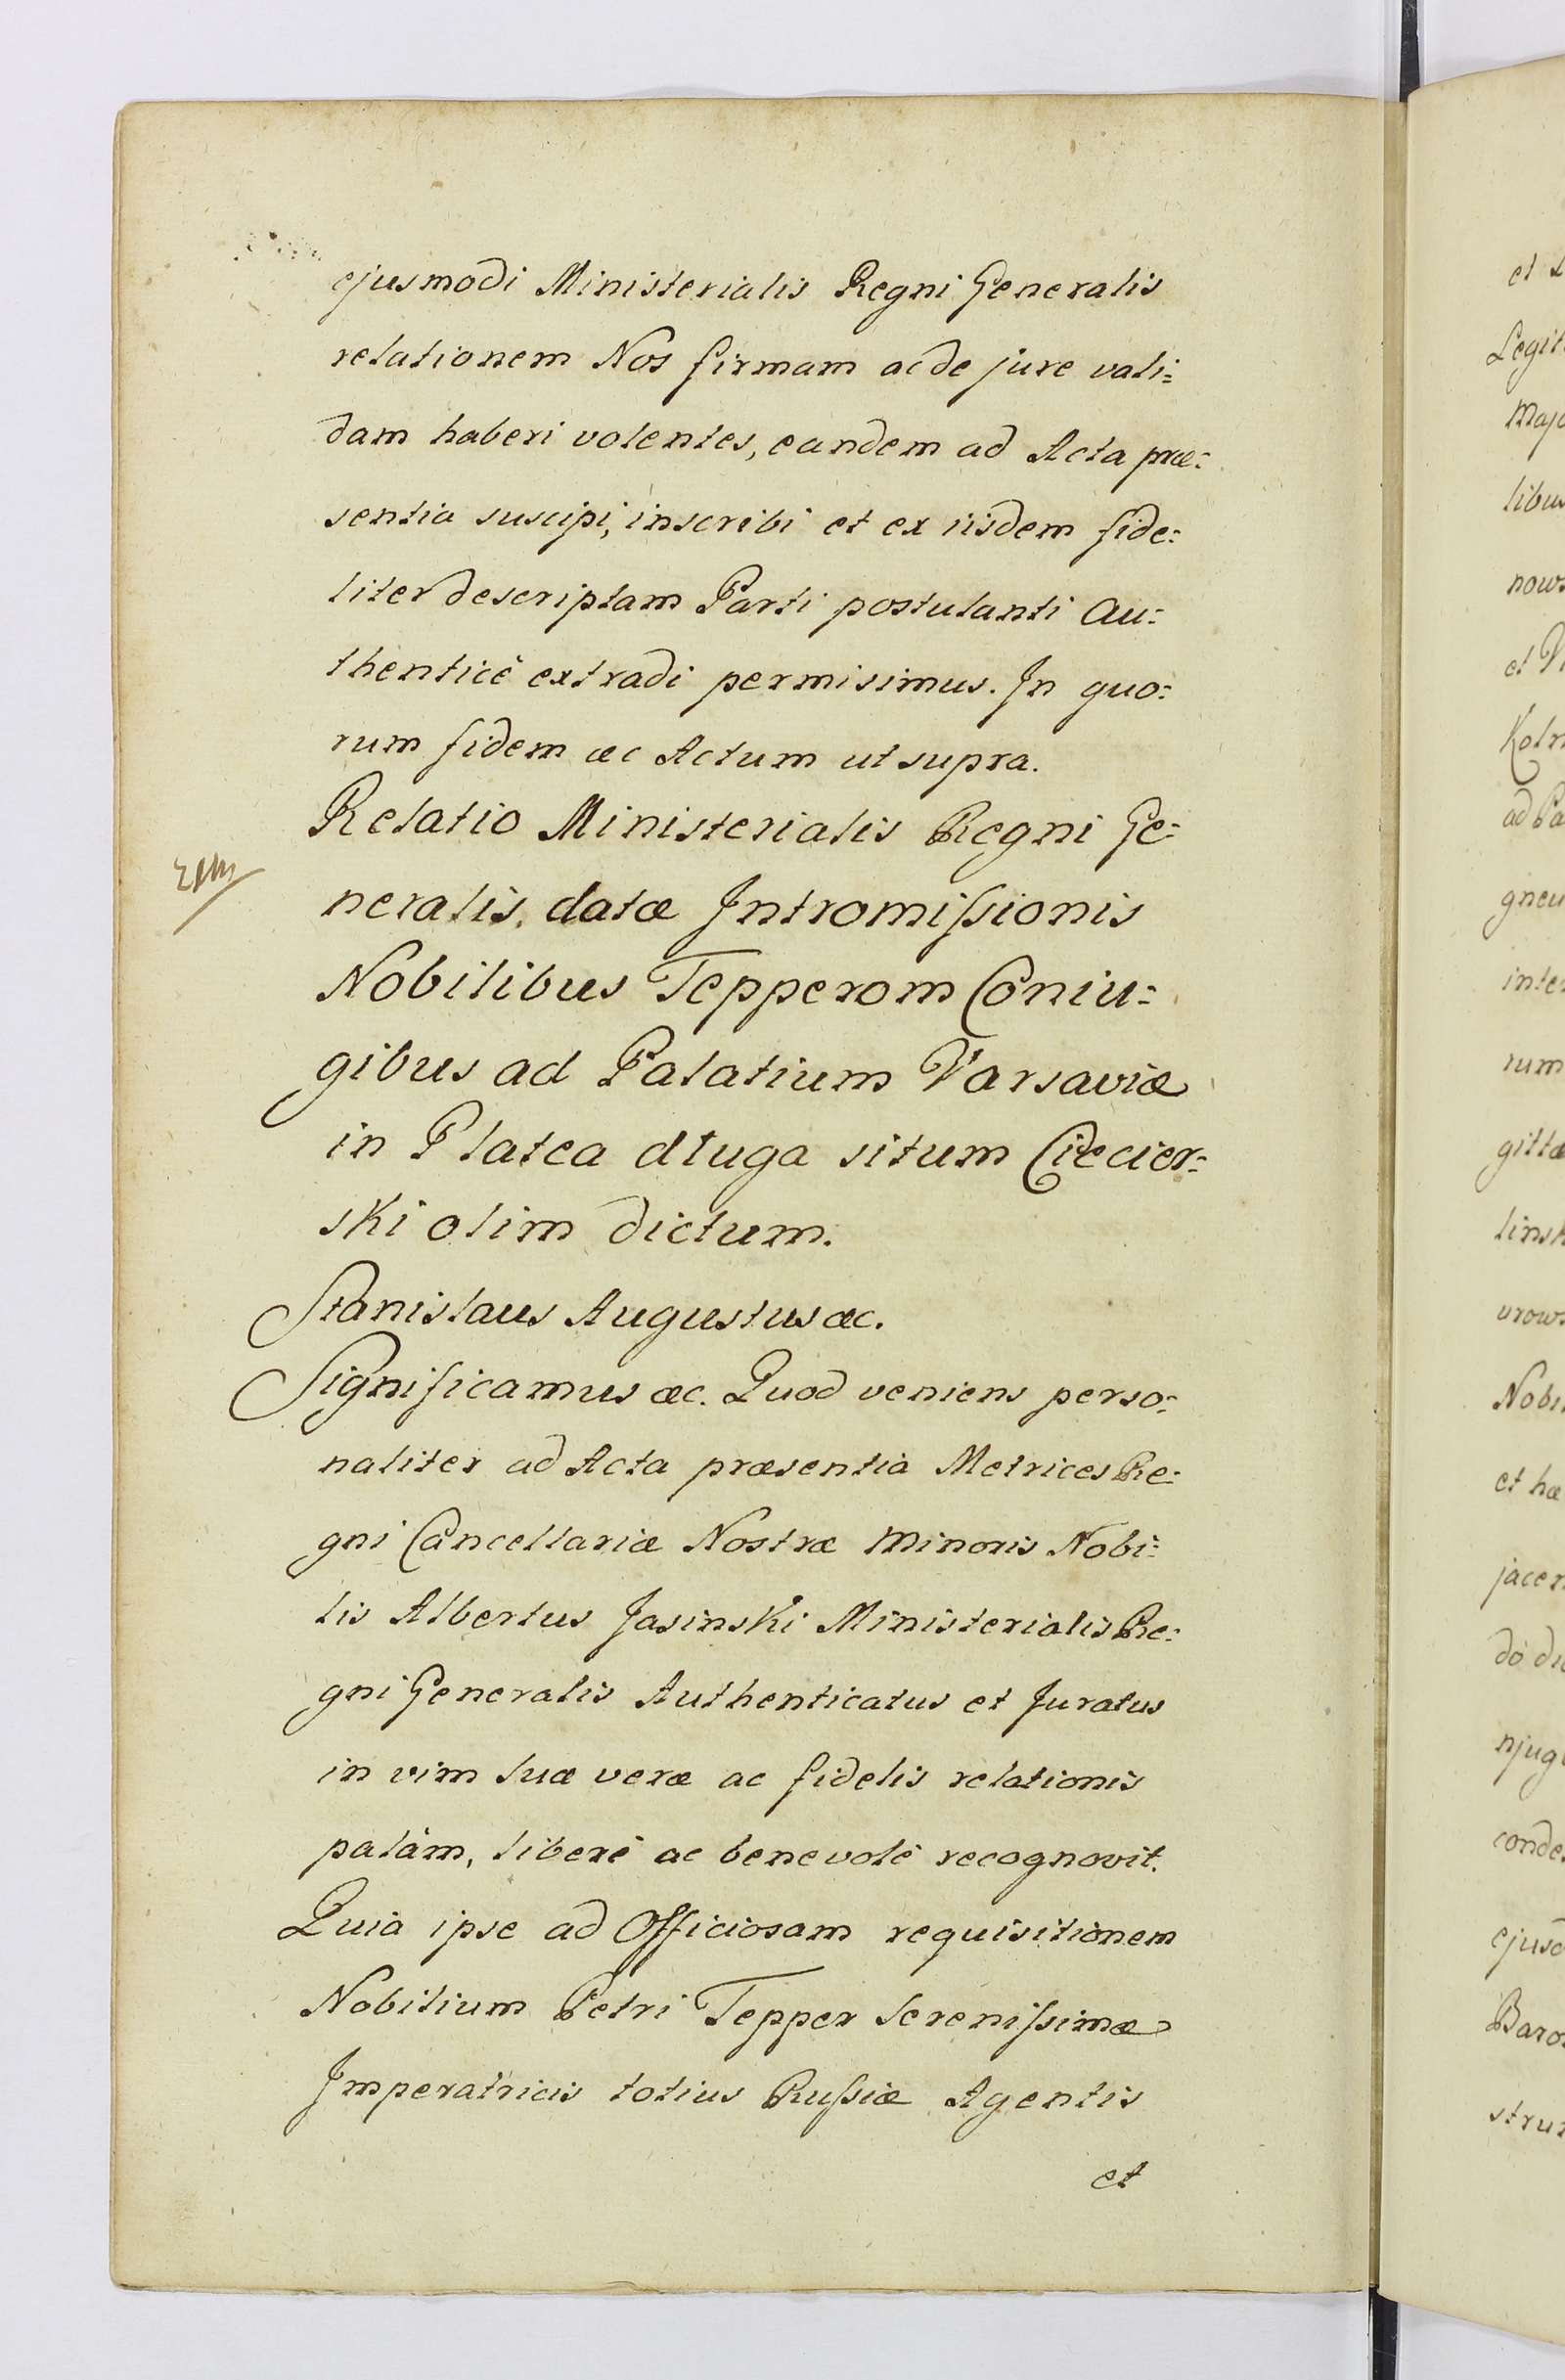 ejusmodi Ministerialis Regni Generalis
relationem Nos firmam ac de jure vali=
dam haberi volentes, eandem ad Acta præ=
sentia suscipi, inscribi et ex iisdem fide=
liter descriptam Parti postulanti Au=
thenticè extradi permisimus. In quo=
rum fidem &c Actum ut supra.
Relatio Ministerialis Regni Ge=
neralis, datæ Intromissionis
Nobilibus Tepperom Coniu=
gibus ad Palatium Varsaviæ
in Platea długa situm Ciecier=
ski olim dictum.
Stanislaus Augustus &c.
Significamus &c. Quod veniens perso=
naliter ad Acta præsentia Metrices Re=
gni Cancellariæ Nostræ Minoris Nobi=
lis Albertus Jasinski Ministerialis Re=
gni Generalis Authenticatus et Juratus
in vim suæ veræ ac fidelis relationis
palàm, liberè ac benevolè recognovit.
Quia ipse ad Officiosam requisitionem
Nobilium Petri Tepper Serenissimæ
Imperatricis totius Russiæ Agentis
et